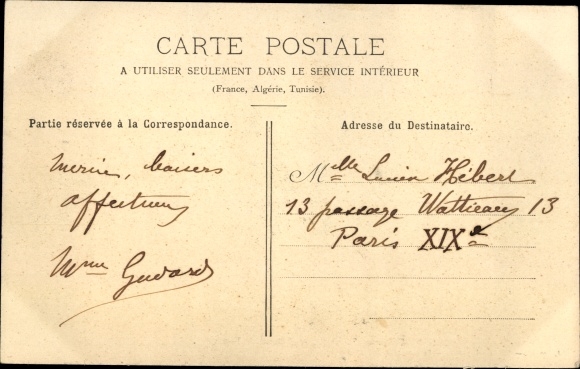 CARTE POSTALE
A UTILISER SEULEMENT DANS LE SERVICE INTÉRIEUR
(France, Algérie, Tunisie).
Partie réservée à la Correspondance.
baisers
affectueux
Mme
Adresse du Destinataire.
Melle Lucien Hébert
13 passage 13
Paris XIXe